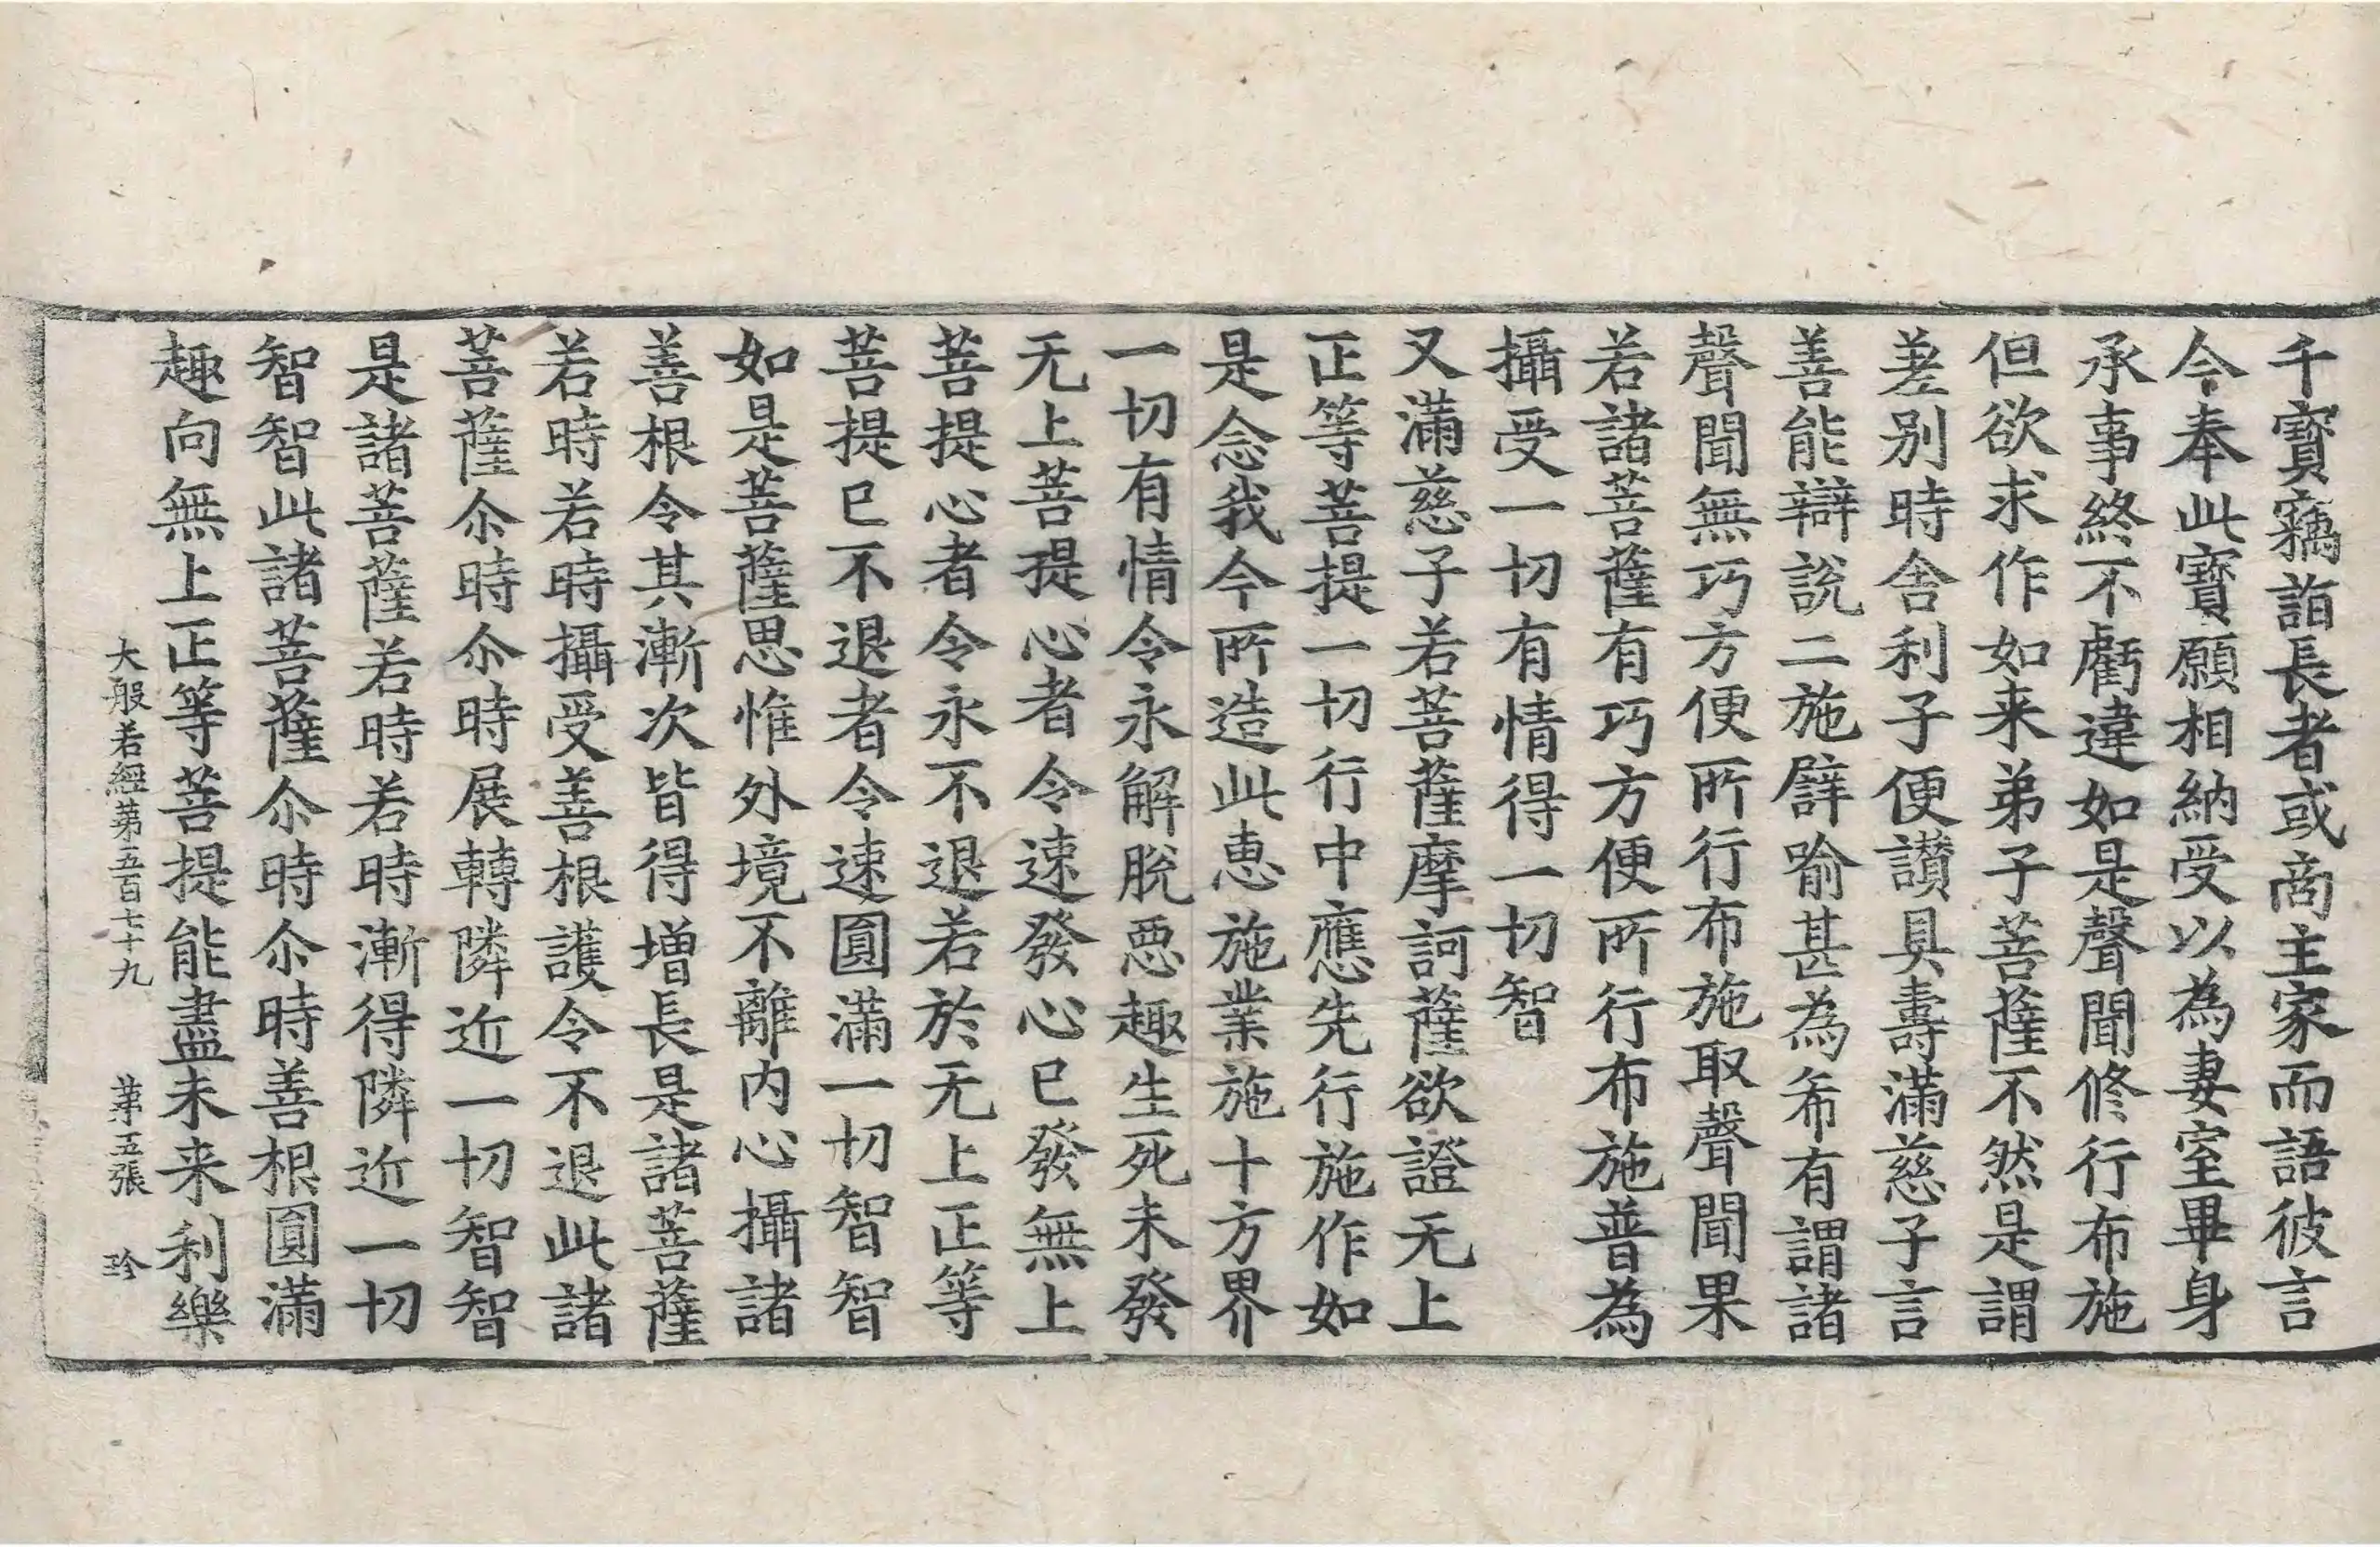 千寳竊詣長者或商主家而語彼言
今奉此寳願相納受以為妻室畢身
承事終不虧違如是聲聞修行布施
但欲求作如来弟子菩薩不然是謂
差别時舍利子便讃具壽滿慈子言
善能辯說二施譬喻甚為希有謂諸
聲聞無巧方便所行布施取聲聞果
若諸菩薩有巧方便所行布施普為
攝受一切有情得一切智
又滿慈子若菩薩摩訶薩欲證无上
正等菩提一切行中應先行施作如
是念我今所造此恵施業施十方界
一切有情令永解脫惡趣生死未發
无上菩提心者令速發心已發無上
菩提心者令永不退若於无上正等
菩提已不退者令速圓滿一切智智
如是菩薩思惟外境不離内心攝諸
善根令其漸次皆得增長是諸菩薩
若時若時攝受善根護令不退此諸
菩薩尒時尒時展轉隣近一切智智
是諸菩薩若時若時漸得隣近一切
智智此諸菩薩尒時尒時善根圓滿
趣向無上正等菩提能盡未来利樂
大般若經苐五百七十九　苐五張　珎